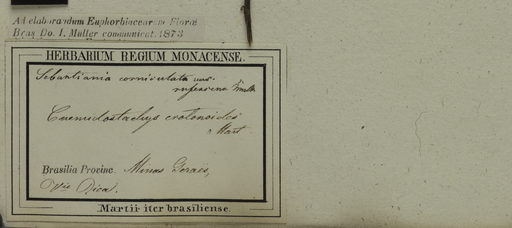 Ad elaborandum Euphorbiacearum Florae
Bras Do. I. Müller communicat. 1873
HERBARIUM REGIUM MONACENSE.
Sebastiania corniculata var.
Cnemidostachys crotonoides
Mart
Brasilia Provinc. Minas Geraes,
Martii iter brasiliense.